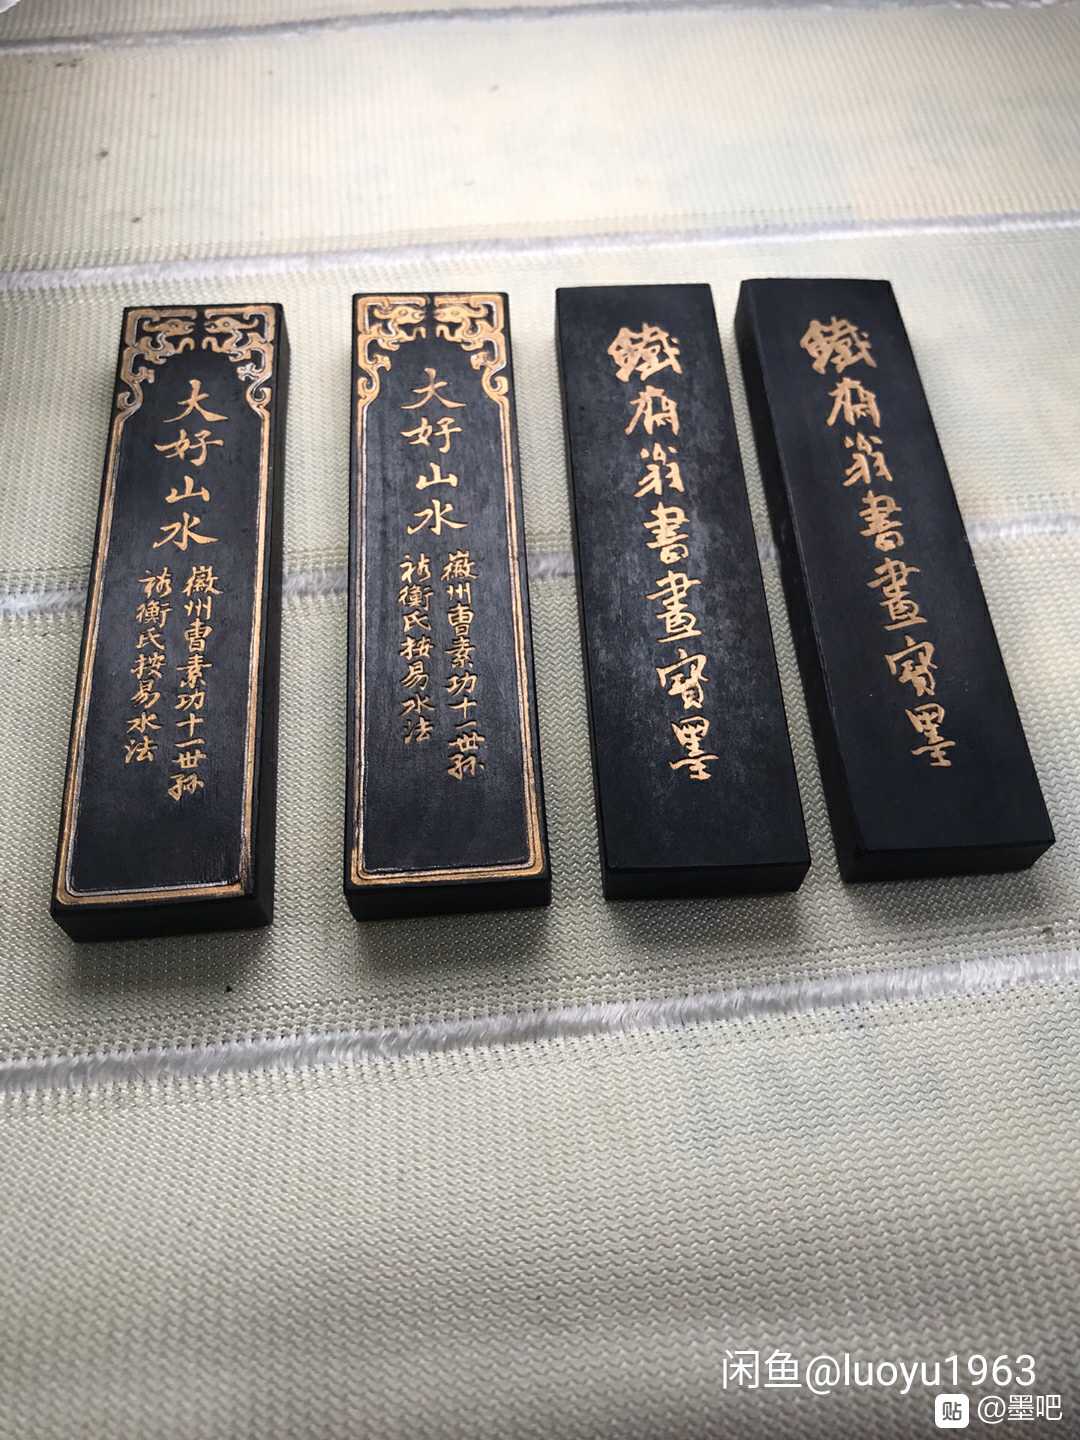 大好山水
徽州曹素功十一世孫
裔衡氏按易水法
大好山水
徽州曹素功十一世孫
裔衡氏按易水法
鐵齋翁書畫寶墨
鐵齋翁書畫寶墨
闲鱼@luoyu1963
贴 @墨吧